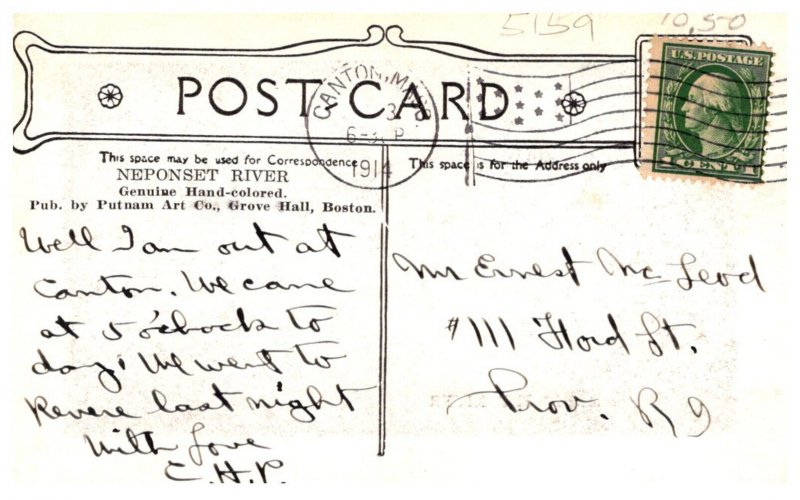 5159
10.50
U.S. POSTAGE
1 CENT 1
POST CARD
CANTON, MASS
3
6-30 P
1914
This space may be used for Correspondence
This space is for the Address only
NEPONSET RIVER
Genuine Hand-colored.
Pub. by Putnam Art Co., Grove Hall, Boston.
Well I am out at
Canton. We came
at 5 o'clock to
day. We went to
Revere last night
With Love
E.H.P.
Mr Ernest McLeod
#111 Ford St.
Prov. R I